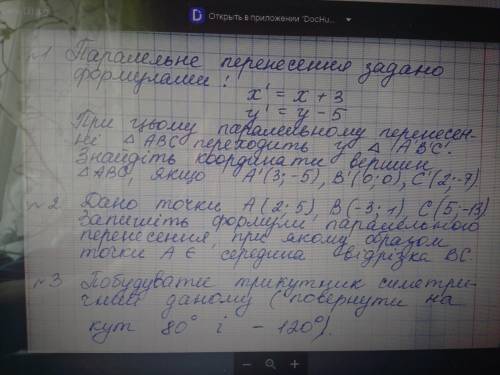 Открыть в приложении "DocHu...
№1 Паралельне перенесення задано
формулами:
x' = x + 3
y' = y - 5
При цьому паралельному перенесен-
ні △ABC переходить у △A'B'C'.
Знайдіть координати вершин
△ABC, якщо A'(3; -5), B'(6; 0), C'(2; -7)
№2 Дано точки A(2; 5) B(-3; 1), C(5; -13)
Запишіть формули паралельного
перенесення, при якому образом
точки A є середина відрізка BC.
№3 Побудувати трикутник симетри-
чний даному (повернути на
кут 80° і -120°).